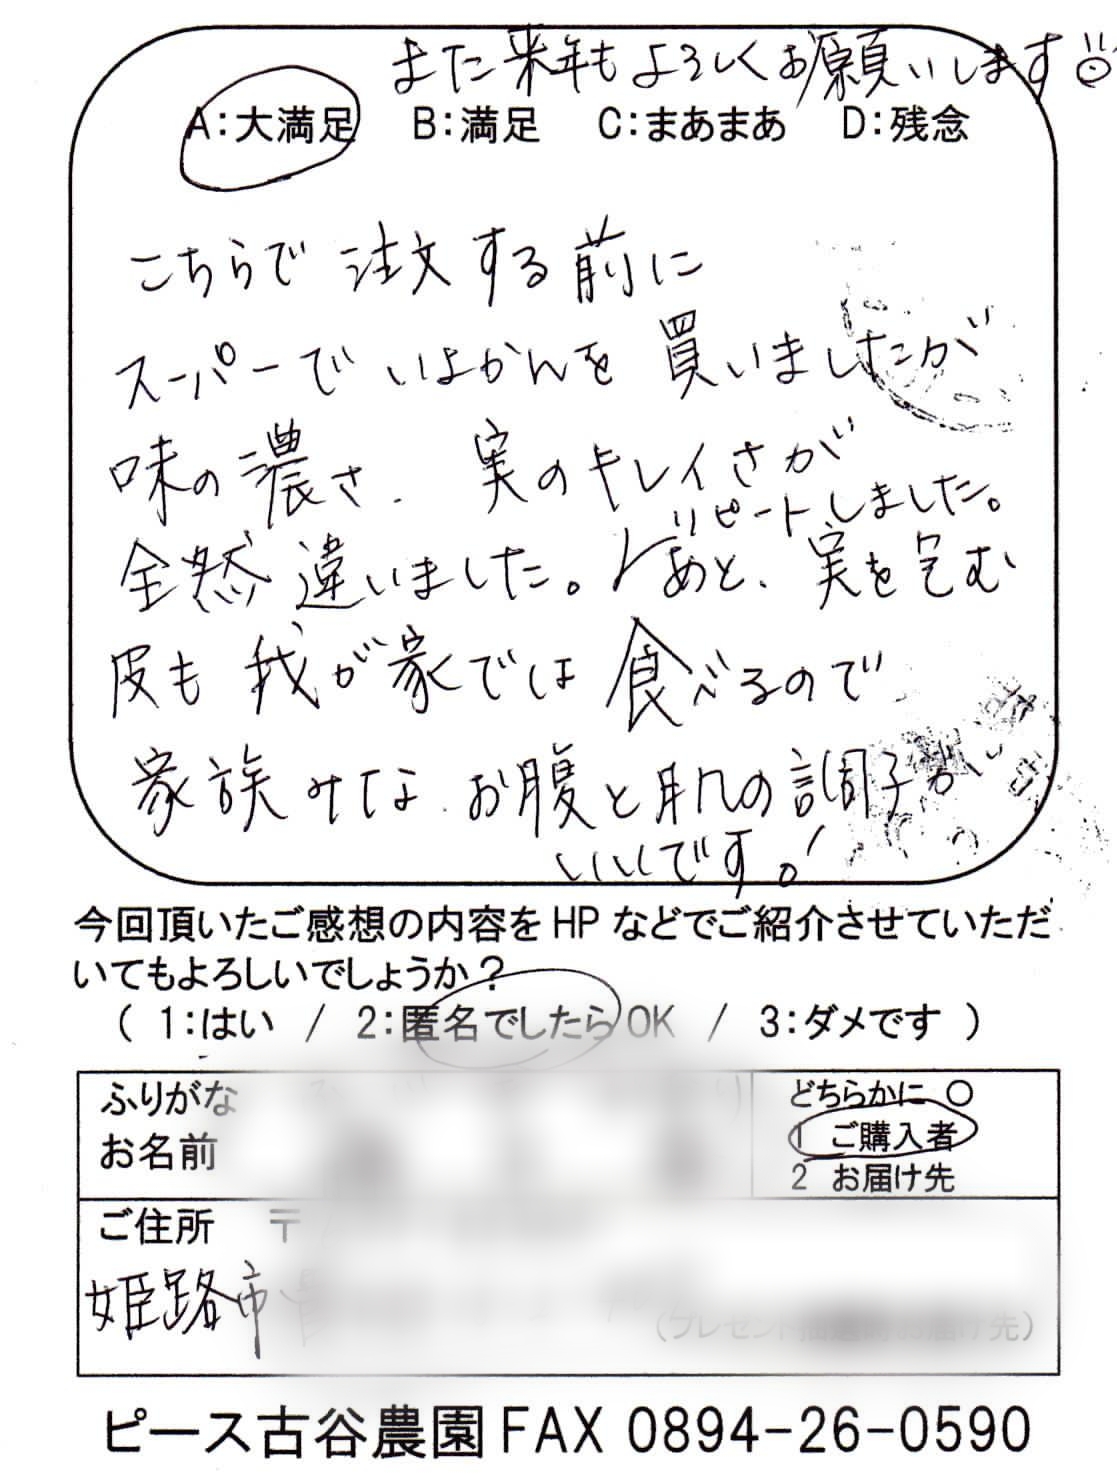 また来年もよろしくお願いします
A：大満足　B：満足　C：まあまあ　D：残念
こちらで注文する前に
スーパーでいよかんを買いましたが
味の濃さ、実のキレイさが
リピートしました。
全然違いました。あと、実を包む
皮も我が家では食べるので
家族みんなお腹と肌の調子が
いいです！
今回頂いたご感想の内容をHPなどでご紹介させていただ
いてもよろしいでしょうか？
（ 1：はい / 2：匿名でしたらOK / 3：ダメです ）
ふりがな
どちらかに ○
お名前
1 ご購入者
2 お届け先
ご住所 〒
姫路市
（プレゼント抽選時お届け先）
ピース古谷農園 FAX 0894-26-0590